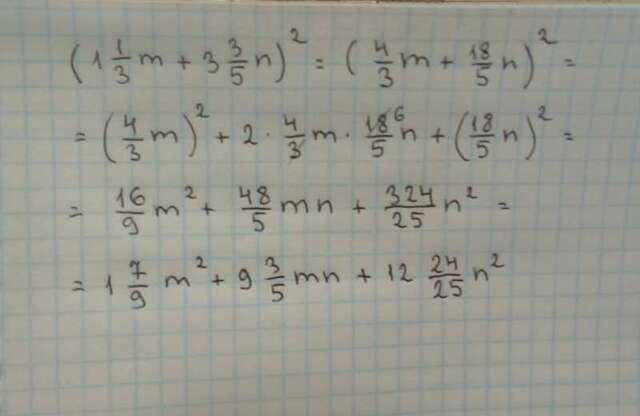 (1 1/3 m + 3 3/5 n)² = (4/3 m + 18/5 n)² =
= (4/3 m)² + 2 · 4/3 m · 18⁶/5 n + (18/5 n)² =
= 16/9 m² + 48/5 mn + 324/25 n² =
= 1 7/9 m² + 9 3/5 mn + 12 24/25 n²